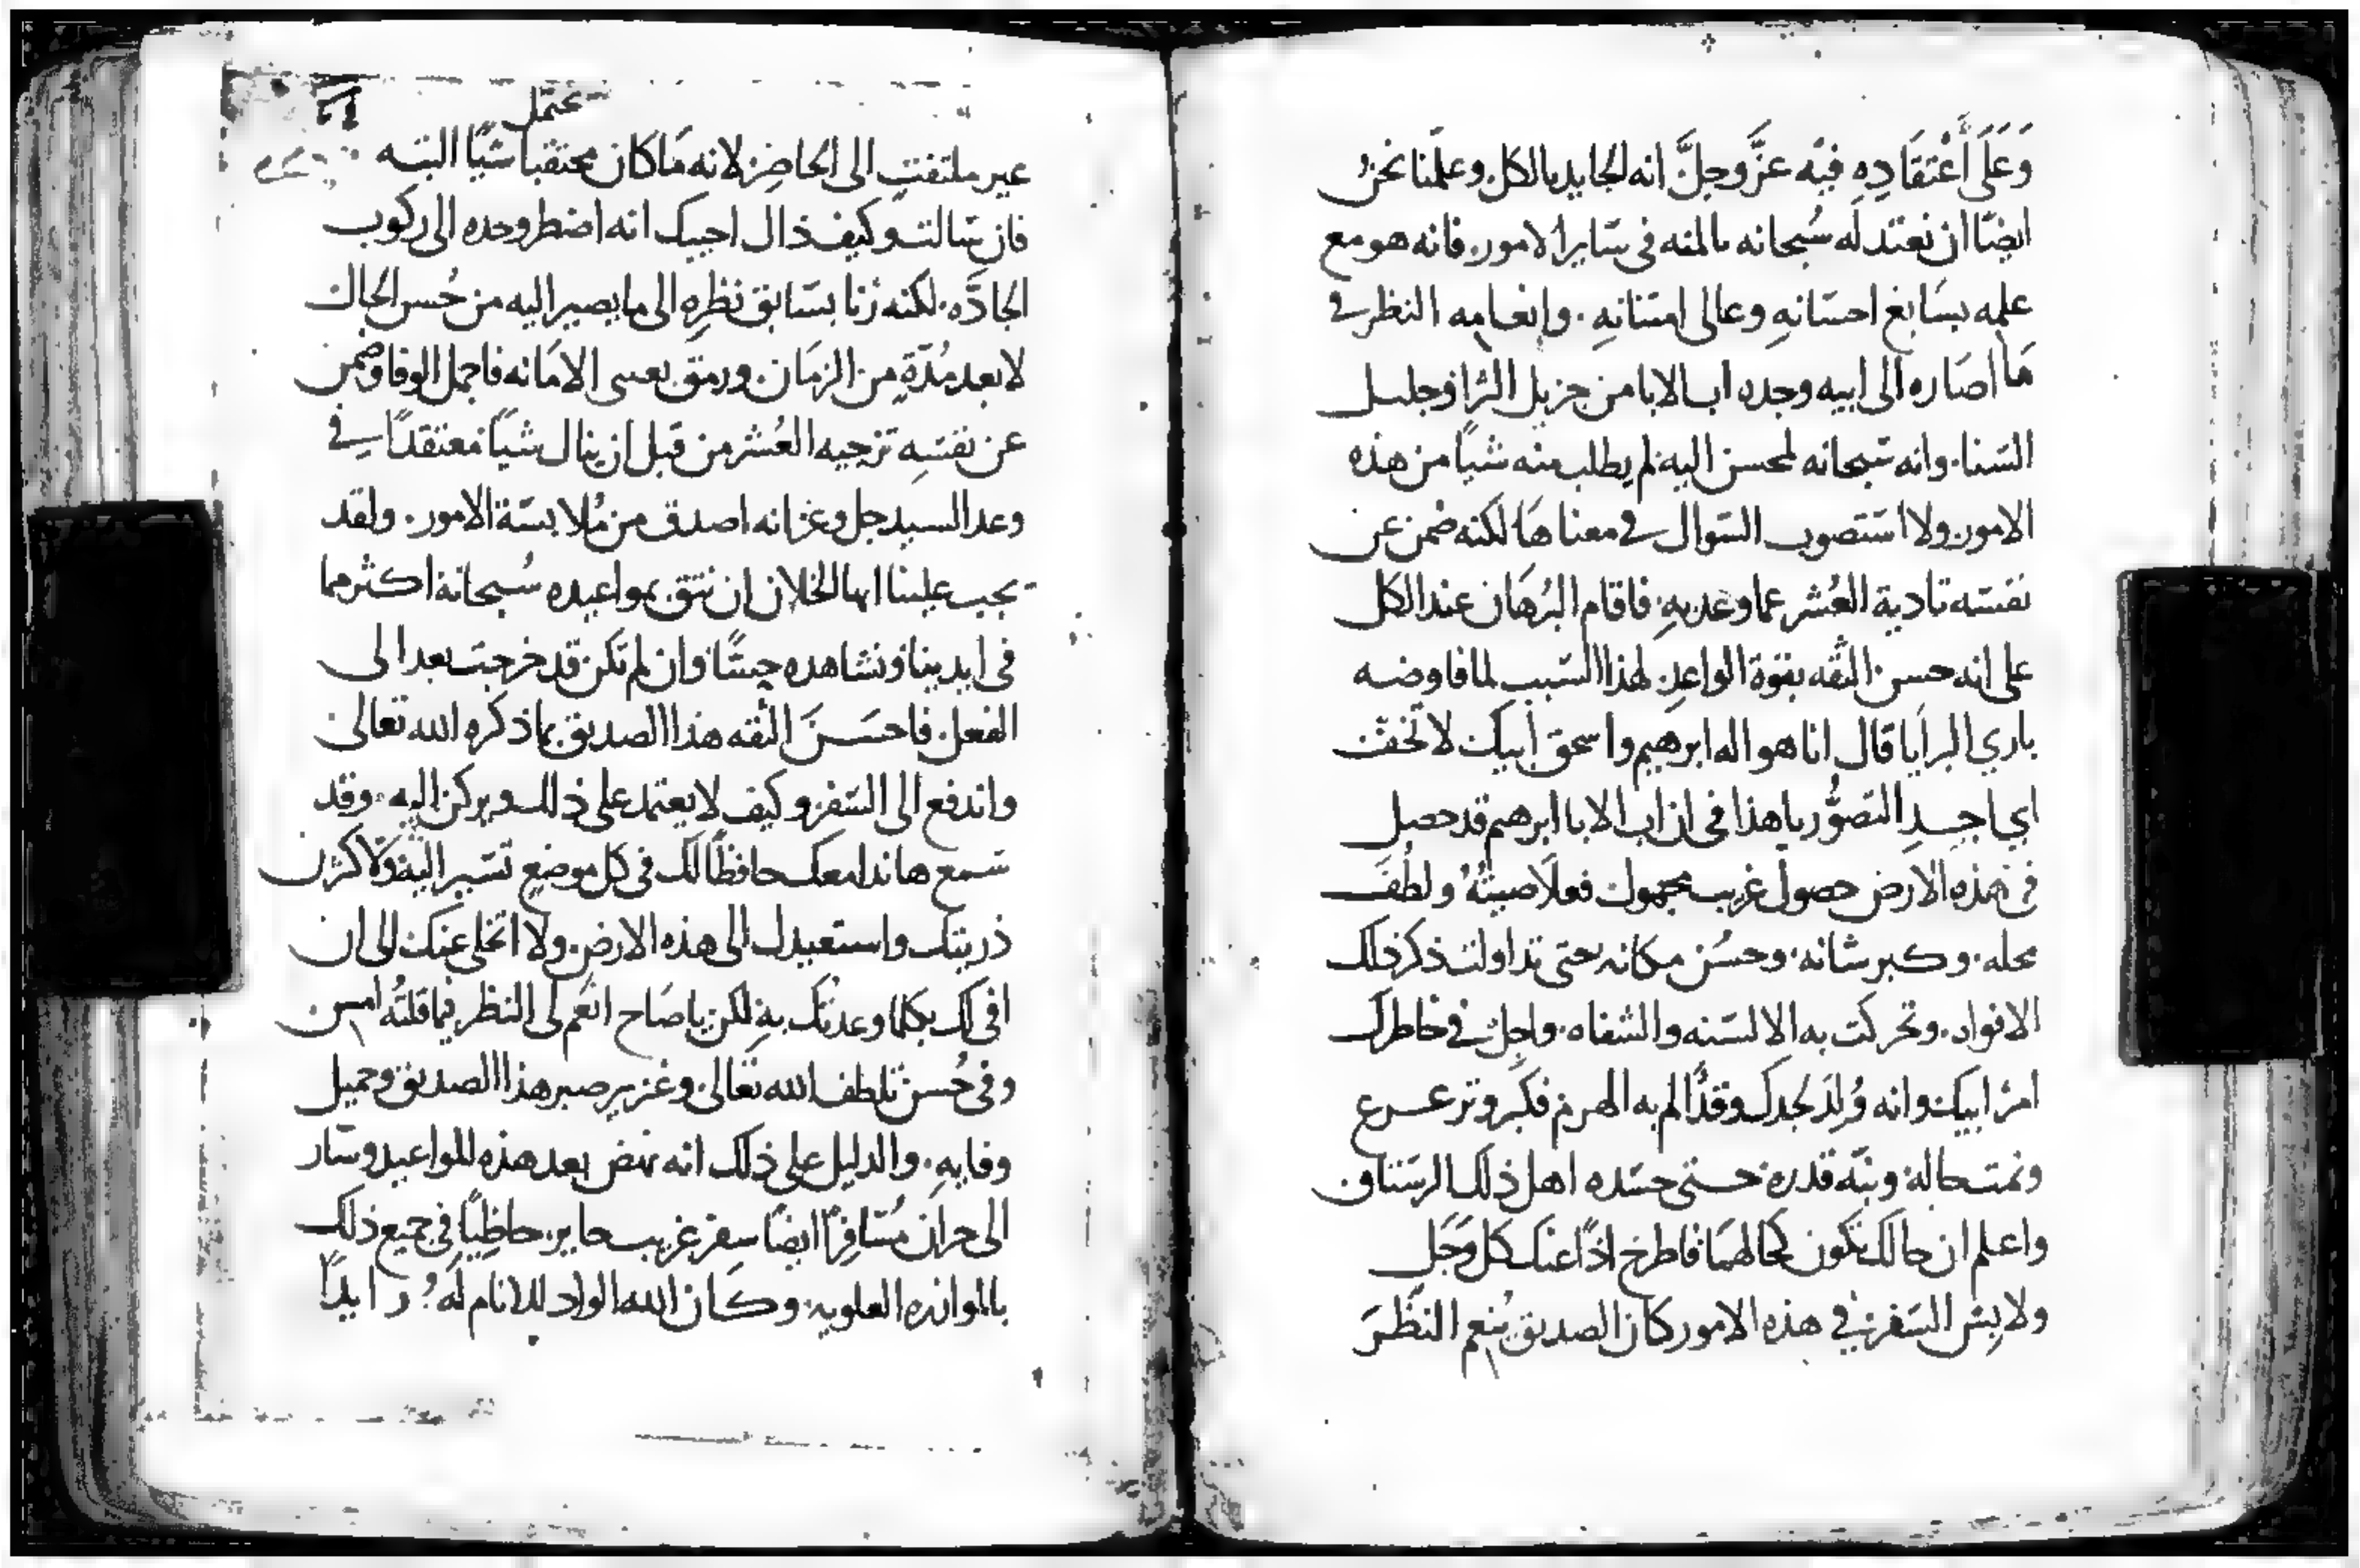 وَعَلَى أَعْتَقَادِهِ فيه عزَّ وجلَّ انه الجايد بالكل وعلّمنا نحنُ
ايضًا ان نعتد له سُبحانه بالمنه في سَاير الامور. فانه هو مع
علمه بسَابغ احسَانهِ وعالى امتنانهِ. وانعامه النظر في
مَا اصَاره الى ابيه وجده اب الابا من جزيل الثرا وجليل
السَنا. وانه سُبحانه لمحسن اليه لم يطلب منه شيا من هذه
الامور ولا استصوب السَوال في معناهَا لكنه ضمن عن
نفسَه تادية العُشر عما وعد بهِ. فاقام البُرهَان عند الكل
على انه حسن الثقه بقوة الواعدِ. لهذا السَبب لما فاوضه
باري البرايا قال انا هو اله ابرهيم واسحق ابيك لا تخفَنَ
اي اجِدِ التصوُّر ياهذا في ان اب الابا ابرهيم قد حصل
في هذه الارض حصول غريب مجهول فعلا صيتُهُ ولطُفَ
محله. وكبر شانه. وحسُن مكانه حتى تداولت ذكر ذلك
الافواه. وتحركت به الالسَنه والشفاه. واجل في خاطرك
امر ابيك وانه وُلدَ لجدك وقد الم به الهرم فكبر وترعرع
ونمت حاله. ونبّه قدره حتى حسَده اهل ذلك الرستاق
واعلم ان حالك تكون كحالهمَا فاطرح اذًا عنك كل وَجَل
ولابس السَفر في هذه الامور كان الصديق يُنعم النظَرَ
محتمل
غير ملتفت الى الحاضر لانه مَا كان محتقبا شيًا البته
فان سَالت وكيف ذال اجيبك انه اضطر وحده الى ركوب
الجادَّه. لكنه رنا بسَابق نظرِه الى ما يصير اليه من حُسن الحال
لا بعد مُدّةٍ من الزمَان. ورمق بعين الامَانه فاجمل الوفا وضمن
عن نفسَهِ تزجيه العُشر من قبل ان ينال شيًا معتقدًا في
وعد السيد جل وعز انه اصدق من مُلابسَة الامور. ولقد
يجب علينا ايها الخلان ان نثق بمواعيده سُبحانه اكثر مما
في ايدينا ونشاهده حِسًا وان لم تكن قد خرجت بعد الى
الفعل. فاحسَنَ الثقه هذا الصديق بما ذكره الله تعالى
واندفع الى السَفر وكيف لا يعتمد على ذلك ويركن اليه. وقد
سَمع هانذا معك حافظًا لك في كل موضع تسَير اليه ولاكثرن
ذريتك واستعيدك الى هذه الارض. ولا اتخلى عنك الى ان
افى لك بكلما وعدتك بهِ لكن ياصَاح انعَم لى النظر فيما قلتُه امس
وفي حُسن تلطف الله تعَالى وغزير صبر هذا الصديق وجميل
وفايهِ. والدليل على ذلك انه نهض بعد هذه المواعيد وسَار
الى حران مُسَافِرًا ايضًا سفر غريب حاير. حاظِيًا في جميع ذلك
بالموازره العلويه. وكان الله الواد للانام لَهُ رايدًا